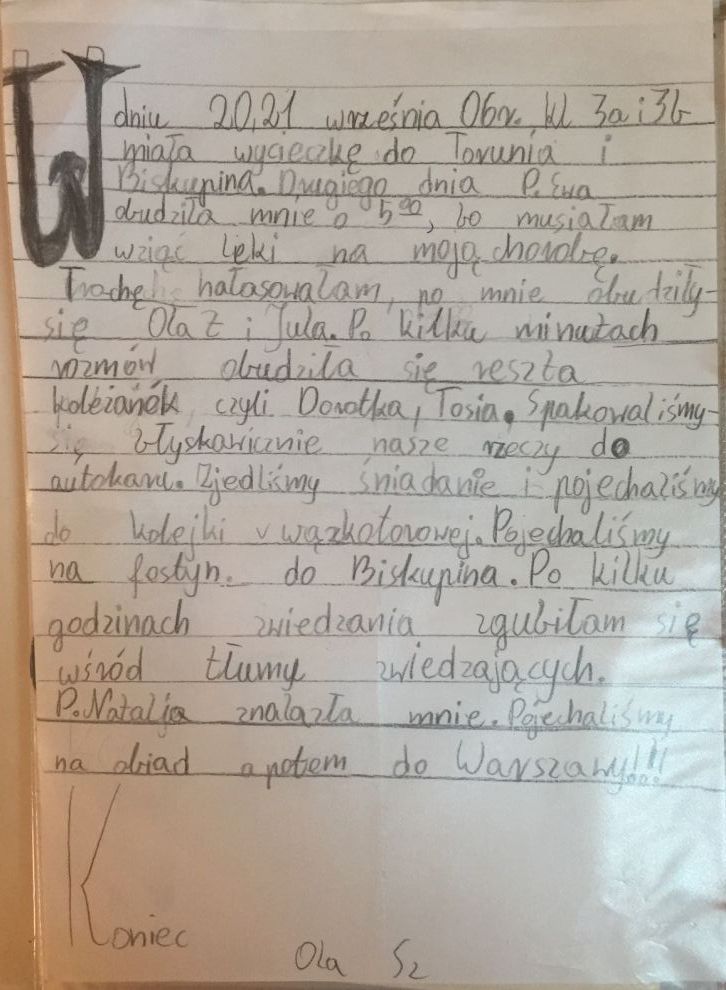 W dniu 20,21 września 06r. kl 3a i 3b
miała wycieczkę do Torunia i
Biskupina. Drugiego dnia P. Ewa
obudziła mnie o 5⁰⁰, bo musiałam
wziąć lęki na moją chorobę.
Trochę hałasowałam, po mnie obudziły-
się Ola Z i Jula. Po kilku minutach
rozmów obudziła się reszta
koleżanek, czyli Dorotka, Tosia. Spakowaliśmy-
się błyskawicznie nasze rzeczy do
autokaru. Zjedliśmy śniadanie i pojechaliśmy
do kolejki wązkotorowej. Pojechaliśmy
na fostyn. do Biskupina. Po kilku
godzinach zwiedzania zgubiłam się
wśród tłumy zwiedzających.
P. Natalia znalazła mnie. Pojechaliśmy
na obiad a potem do Warszawy!!!
Koniec
Ola Sz